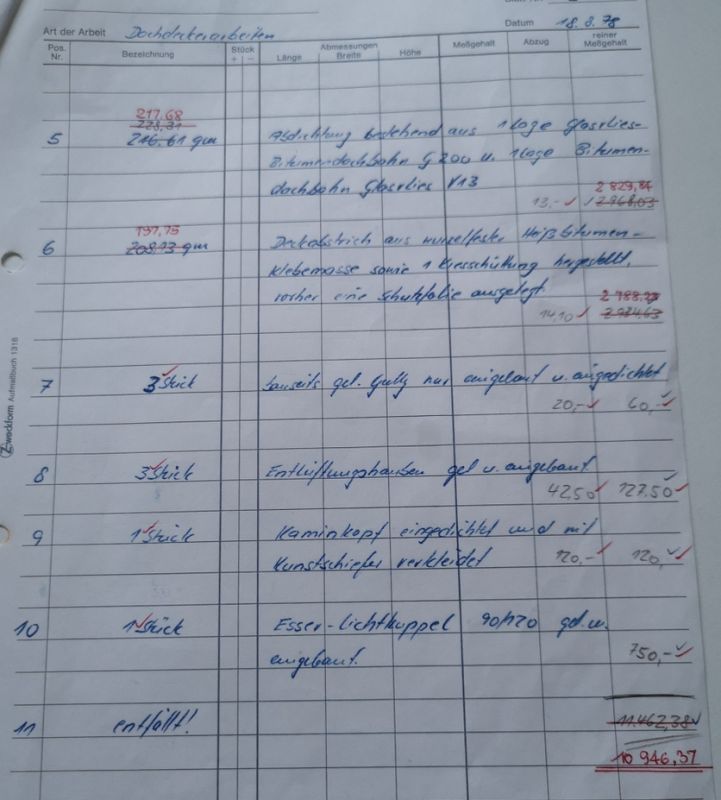 Datum 18.8.78
Art der Arbeit Dachdeckerarbeiten
Pos. Nr. Bezeichnung Stück + − Abmessungen Länge Breite Höhe Meßgehalt Abzug reiner Meßgehalt
217,68
228,31
5 216.61 qm Abdichtung bestehend aus 1 Lage Glasvlies-
Bitumendachbahn G 200 u. 1 Lage Bitumen-
dachbahn Glasvlies V13
2 829,84
13,- 2 968,03
197,75
6 208.13 qm Deckabstrich aus wurzelfester Heißbitumen-
klebemasse sowie 1 Kiesschüttung hergestellt,
vorher eine Schutzfolie ausgelegt.
2 788,23
14,10 2 934,63
7 3 Stück bauseits gel. Gully nur eingebaut u. eingedichtet
20,- 60,-
8 3 Stück Entlüftungshauben gel. u. eingebaut.
42,50 127,50
9 1 Stück Kaminkopf eingedichtet und mit
Kunstschiefer verkleidet 120,- 120,-
10 1 Stück Esser-Lichtkuppel 90/120 gel. u.
eingebaut. 750,-
11 entfällt! 11.462,38
10 946,37
Zweckform Aufmaßbuch 1318